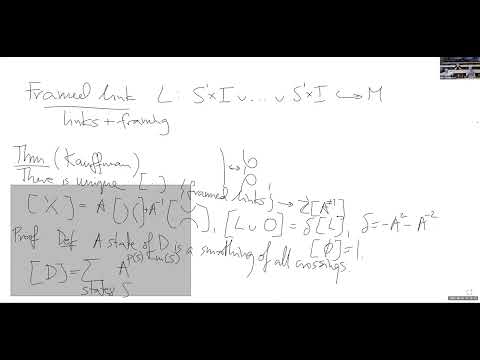 Framed link L: S¹×I ∪ ... ∪ S¹×I ↪ M
links + framing
Thm (Kauffman)
There is unique [·] {framed links} → Z[A^{±1}]
[X] = A[)(] + A^{-1}[≍], [L ∪ O] = δ[L], δ = -A² - A^{-2}
[∅] = 1.
Proof Def A state of D is a smoothing of all crossings.
[D] = Σ_{states S} A^{p(s)-n(s)}